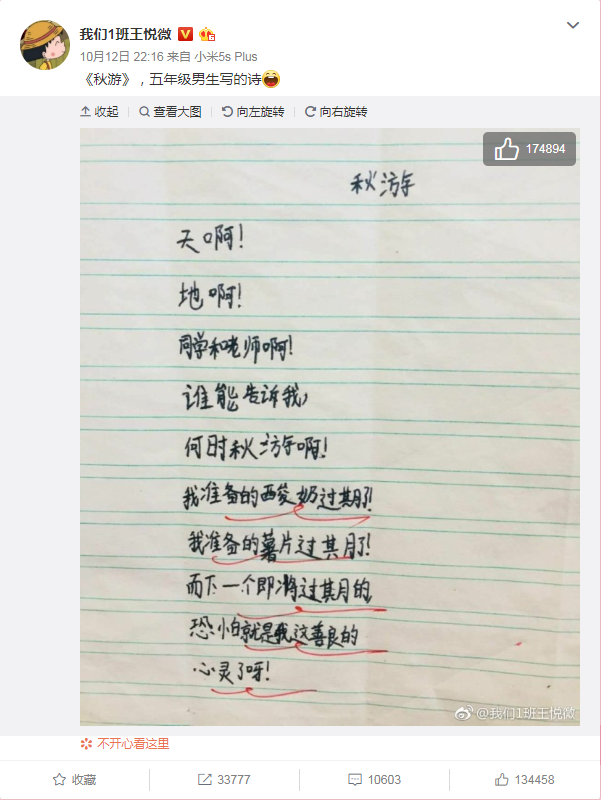 我们1班王悦微
10月12日 22:16 来自 小米5s Plus
《秋游》，五年级男生写的诗😂
收起 查看大图 向左旋转 向右旋转
174894
秋游
天啊！
地啊！
同学和老师啊！
谁能告诉我，
何时秋游啊！
我准备的酸奶过期了！
我准备的薯片过期了！
而下一个即将过期的，
恐怕就是我这善良的
心灵了呀！
@我们1班王悦微
不开心看这里
收藏 33777 10603 134458